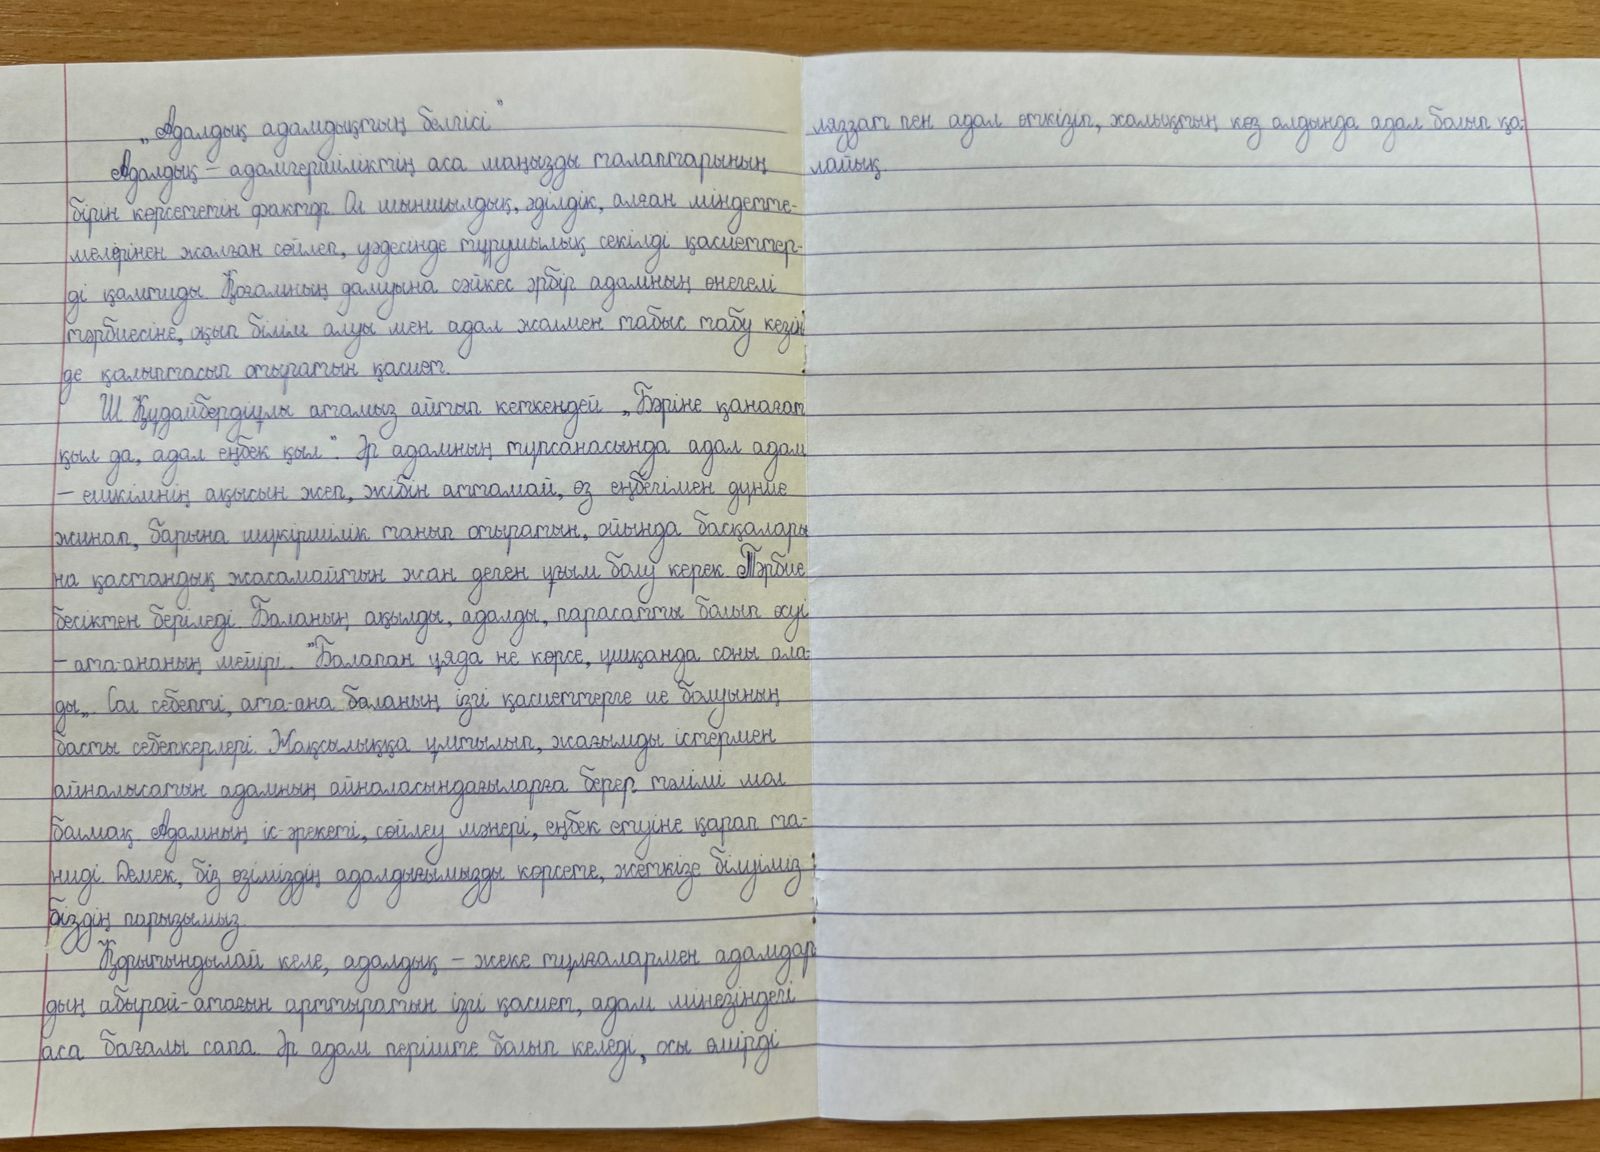 „Адалдық адамдықтың белгісі"
Адалдық – адамгершіліктің аса маңызды талаптарының
бірін көрсететін фактор. Ол шыншылдық, әділдік, алған міндетте-
мелерінен жалған сөйлеп, уәдесінде тұрушылық секілді қасиеттер-
ді қамтиды. Қоғамның дамуына сәйкес әрбір адамның өнегелі
тәрбиесіне, оқып білім алуы мен адал жолмен табыс табу кезін
де қалыптасып отыратын қасиет.
Ш. Құдайбердіұлы атамыз айтып кеткендей „Бәріне қанағат
қыл да, адал еңбек қыл". Әр адамның түпсанасында адал адам
– ешкімнің ақысын жеп, жібін аттамай, өз еңбегімен дүние
жинап, барына шүкіршілік танып отыратын, ойында басқалары
на қастандық жасамайтын жан деген ұғым болу керек. Тәрбие
бесіктен беріледі. Баланың ақылды, адалды, парасатты болып өсуі
– ата-ананың мейірі. "Балапан ұяда не көрсе, ұшқанда соны ала-
ды„. Сол себепті, ата-ана баланың ізгі қасиеттерге ие болуының
басты себепкерлері. Жақсылыққа ұмтылып, жағымды істермен
айналысатын адамның айналасындағыларға берер тәлімі мол
болмақ. Адамның іс-әрекеті, сөйлеу мәнері, еңбек етуіне қарап та-
ниді. Демек, біз өзіміздің адалдығымызды көрсете, жеткізе білуіміз
біздің парызымыз.
Қорытындылай келе, адалдық – жеке тұлғалармен адамдар
дың абырой-атағын арттыратын ізгі қасиет, адам мінезіндегі
аса бағалы сапа. Әр адам періште болып келеді, осы өмірді
ләззат пен адал өткізіп, халықтың көз алдында адал болып қа-
лайық.